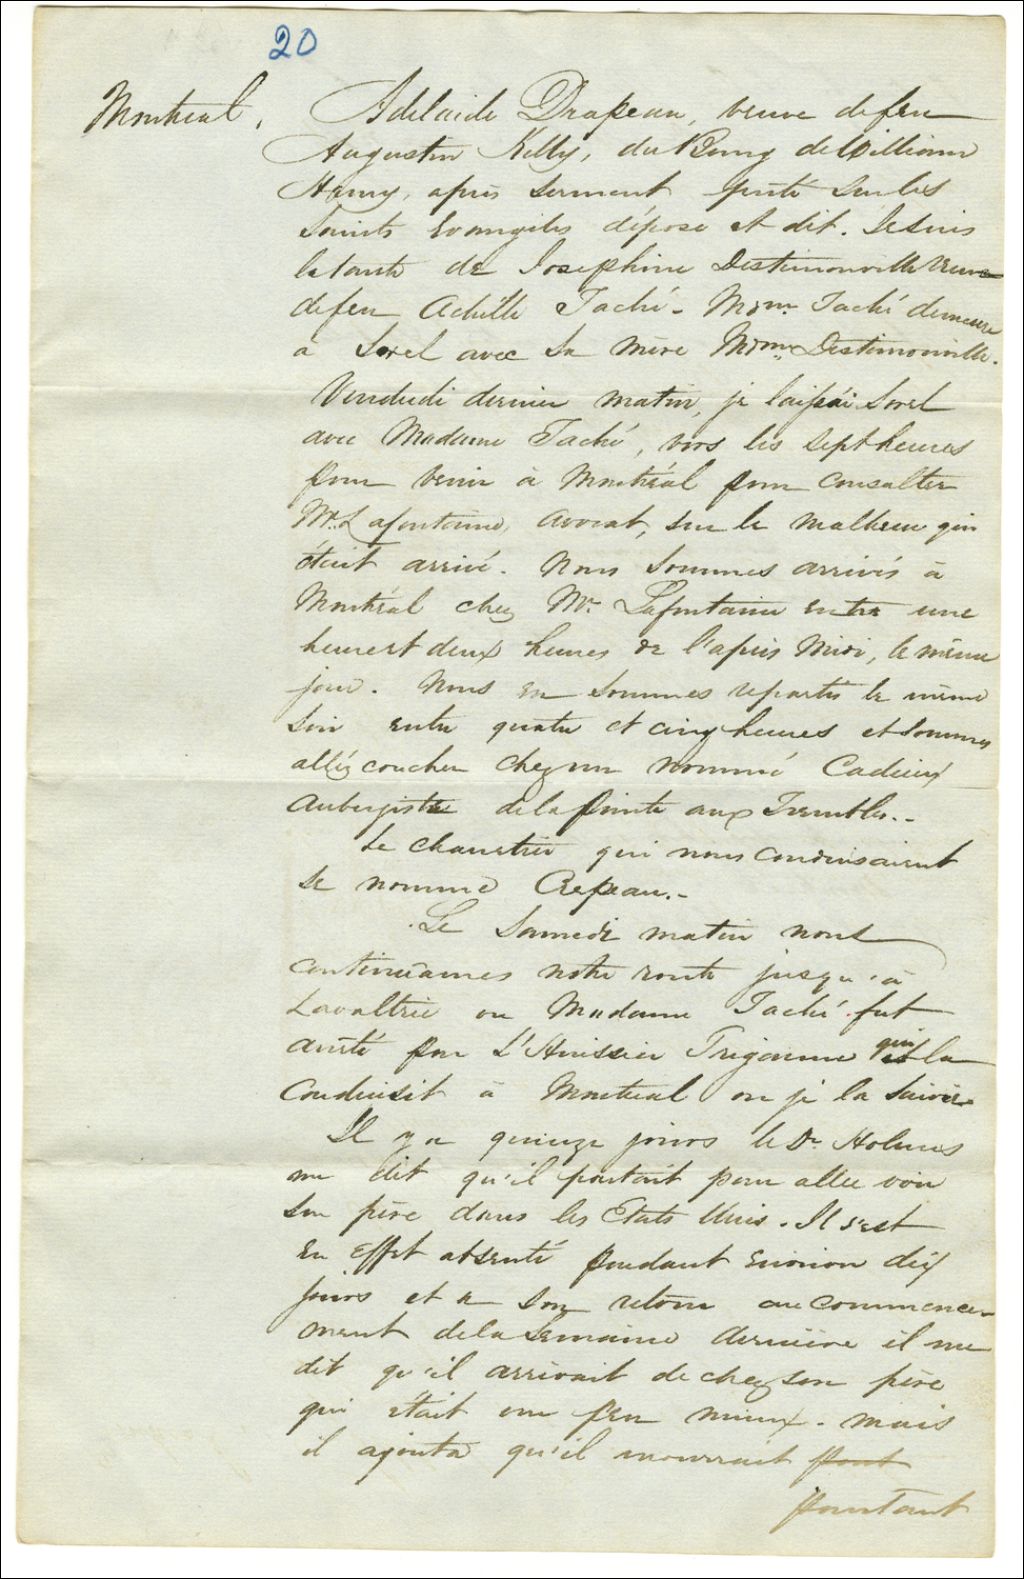 20
Montreal.
Adelaide Drapeau, veuve de feu
Augustin Kelly, du Bourg de William
Henry, après serment prêté sur les
Saints Evangiles dépose et dit. Je suis
la tante de Josephine Destimonville veuve
de feu Achille Taché - Mdme. Taché demeure
a Sorel avec sa mère Mdme. Destimonville.
Vendredi dernier matin, je laissai Sorel
avec Madame Taché, vers les sept heures
pour venir à Montréal pour consulter
Mr. Lafontaine, avocat, sur le malheur qui
était arrivé. Nous sommes arrivés à
Montréal chez Mr. Lafontaine entre une
heure et deux heures de l'après midi, le même
jour. Nous en sommes repartis le même
soir entre quatre et cinq heures et sommes
allés coucher chez un nommé Cadieux
Aubergiste de la Pointe aux Trembles.-
Le charetier qui nous conduisaient
se nomme Crepeau.-
Le Samedi matin nous
continuames notre route jusqu'à
Lavaltrie ou Madame Taché fut
arrêté par L'Huissier Triganne qui la
conduisit à Montreal ou je la suivis.
Il y a quinze jours le Dr. Holmes
me dit qu'il partait pour aller voir
son père dans les Etats Unis. Il s'est
en effet absenté pendant environ dix
jours et a son retour au commence-
ment de la semaine dernière il me
dit qu'il arrivait de chez son père
qui était un peu mieux. mais
il ajouta qu'il mourrait pout
pourtant